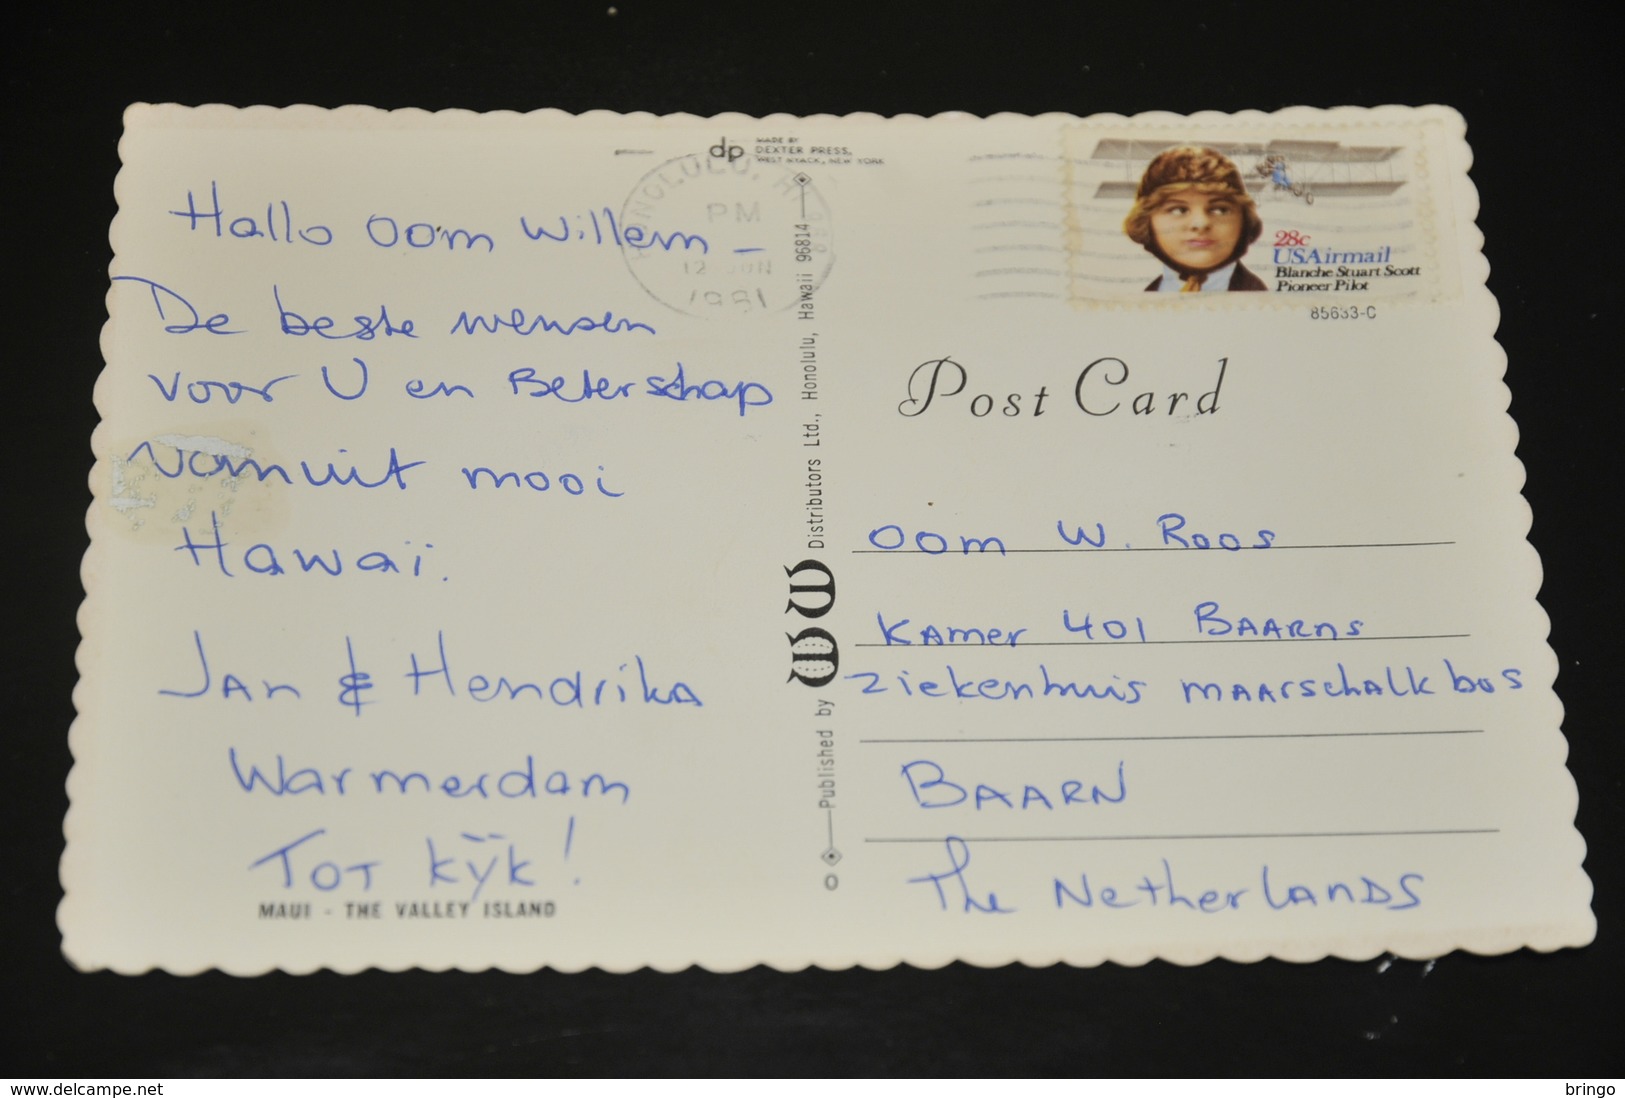 dp MADE BY
DEXTER PRESS,
WEST NYACK, NEW YORK
HONOLULU, HI
PM
12 JUN
1981
28c
USAirmail
Blanche Stuart Scott
Pioneer Pilot
85633-C
Hallo Oom Willem -
De beste wensen
voor U en Beterschap
vanuit mooi
Hawaï.
Jan & Hendrika
Warmerdam
Tot kÿk!
MAUI - THE VALLEY ISLAND
Published by WW Distributors Ltd., Honolulu, Hawaii 96814
Post Card
Oom W. Roos
Kamer 401 BAARNS
Ziekenhuis MAARschALKbos
BAARN
The NetherLANDS
www.delcampe.net
bringo